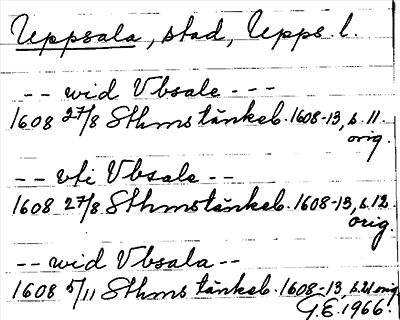 Uppsala, stad, Upps. l.
-- wid Vbsale ---
1608 27/8 Sthms tänkeb. 1608-13, s. 11.
orig.
-- vti Vbsale --
1608 27/8 Sthmstänkeb. 1608-13, s. 12.
orig.
-- wid Vbsala --
1608 5/11 Sthms tänkeb. 1608-13, s. 21 orig.
G.E. 1966.